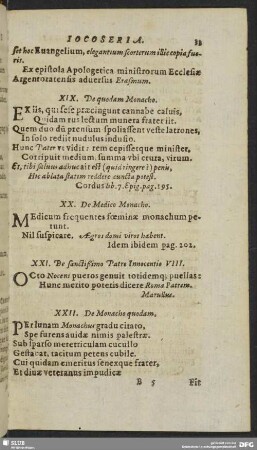 IOCOSERIA. 33
set hoc Euangelium, elegantium scortorum illic copia fue-
rit.
Ex epistola Apologetica ministrorum Ecclesiæ
Argentoratensis aduersus Erasmum.
XIX. De quodam Monacho.
EX iis, qui sese præcingunt cannabe caluis,
Quidam rus lectum munera frater iit.
Quem duo dũ prensum spoliassent veste latrones,
In solo rediit nudulus indusio.
Hunc Pater vt vidit: rem cepissetque minister,
Corripuit medium, summa vbi crura, virum.
Et, tibi saluus adhuc ait est (quid ringere?) penis,
Hic ablata statem reddere cuncta potest.
Cordus lib. 7. Epig. pag. 195.
XX. De Medico Monacho.
MEdicum frequentes fœminæ monachum pe-
tunt.
Nil suspicare. Ægros domi viros habent.
Idem ibidem pag. 202.
XXI. De sanctissimo Patre Innocentio VIII.
OCto Nocens pueros genuit totidemq; puellas:
Hunc merito poteris dicere Roma Patrem.
Marullus.
XXII. De Monacho quodam.
PEr lunam Monachus gradu citato,
Spe furens auidæ nimis palestræ.
Sub sparso meretriculam cucullo
Gestarat, tacitum petens cubile.
Cui quidam emeritus senexque frater,
Et diuæ veteranus impudicæ
B 5 Fit
SLUB
DFG